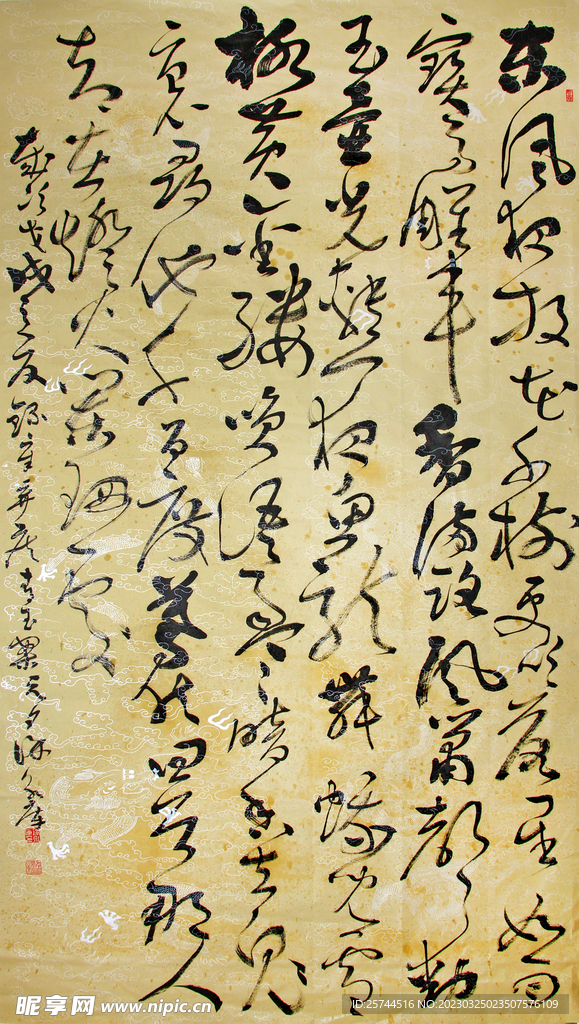 东風夜放花千樹更吹落星如雨
寶馬雕車香满路風簫聲動
玉壺光轉一夜魚龍舞蛾兒雪
柳黄金縷笑语盈盈暗香去眾
裏尋他千百度蓦然回首那人
却在燈火阑珊處
歲次戊戌之夏錄辛弃疾青玉案元夕
昵享网 www.nipic.cn
ID:25744516 NO:20230325023507576109